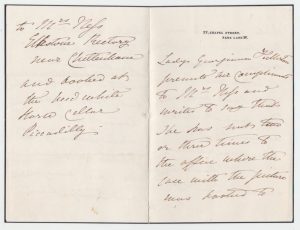 to Mrs Ness
Elkstone Rectory
near Cheltenham
and booked at
the new white
Horse Cellar
Piccadilly
27, CHAPEL STREET,
PARK LANE. W.
Lady Georgiana
presents her compliments
to Mrs Ness and
writes to say that
she has sent two
or three times to
the office where the
case with the picture
was booked to